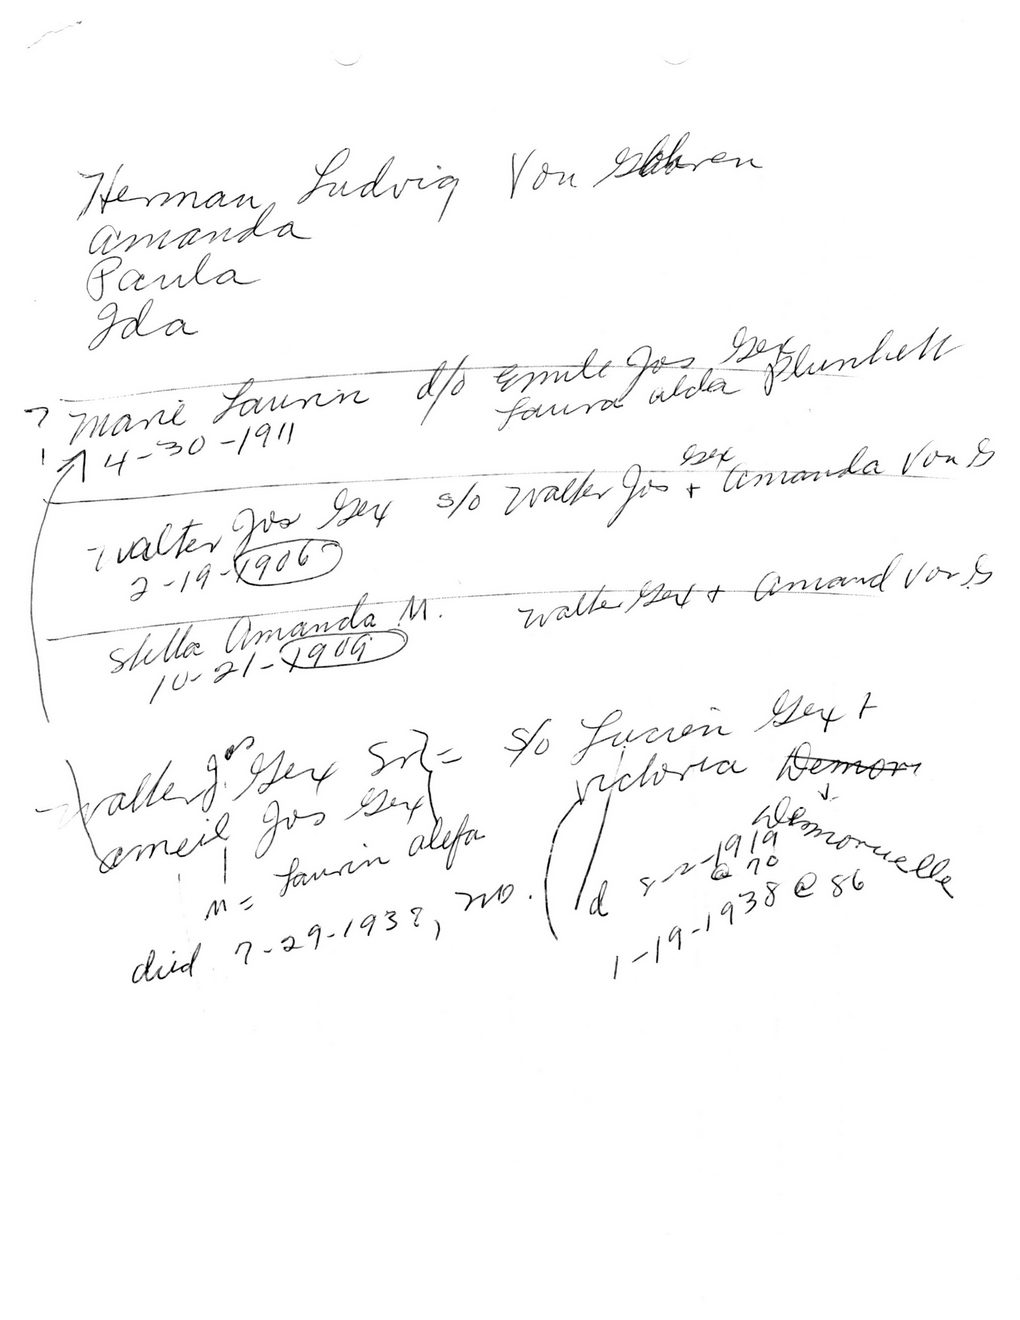 Herman Ludwig Von Gohren
Amanda
Paula
Ida
? Marie Laurin d/o Emile Jos Gex
! 4-30-1911 Laura alda Plunkett
Walter Jos Gex s/o Walter Jos Gex + Amanda Von G
2-19-1906
Stella Amanda M. Walter Gex + Amand Von G
10-21-1909
Walter Jos Gex Sr } = s/o Lucien Gex +
ameil Jos Gex Victoria Demor
Demoruelle
M = Laurin alefa
d 8-2-1919
@ 70
died 7-29-1938, NO. 1-19-1938 @ 86